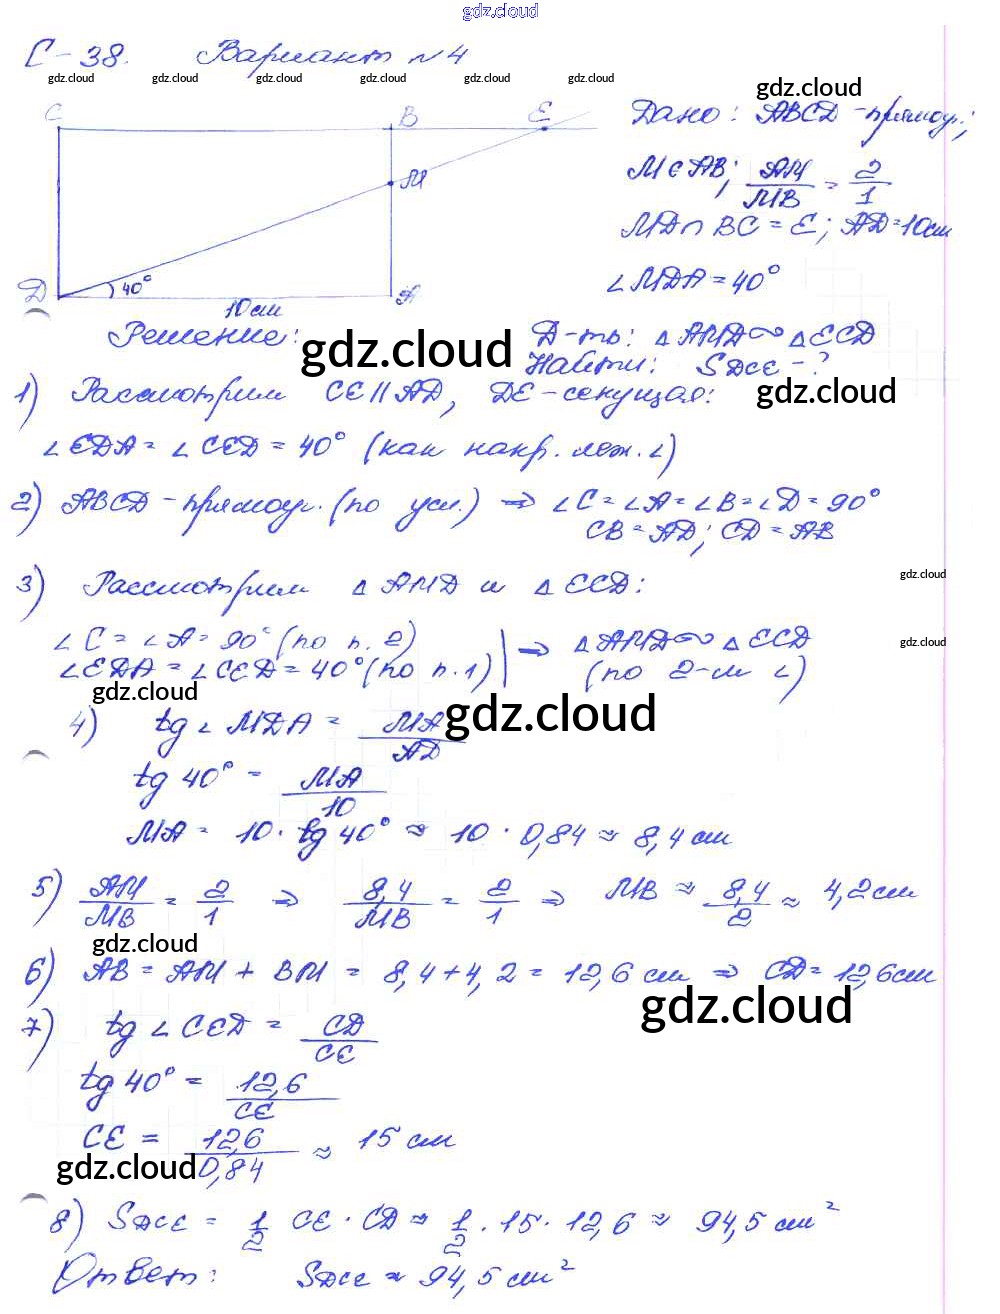 gdz.cloud
С-38. Вариант №4
gdz.cloud gdz.cloud gdz.cloud gdz.cloud gdz.cloud gdz.cloud
gdz.cloud
C B E
M
D 40° A
10см
Дано: ABCD-прямоуг.;
M∈AB; AM/MB = 2/1
MD∩BC = E; AD=10см
∠MDA = 40°
Д-ть: △AMD∾△ECD
Найти: SDCE - ?
Решение:
gdz.cloud
gdz.cloud
1) Рассмотрим CE||AD, DE-секущая:
∠EDA = ∠CED = 40° (как накр. леж. ∠)
2) ABCD-прямоуг. (по усл.) ⇒ ∠C=∠A=∠B=∠D=90°
CB = AD; CD = AB
3) Рассмотрим △AMD и △ECD:
gdz.cloud
∠C = ∠A = 90° (по п. 2)
∠EDA = ∠CED = 40° (по п. 1) | ⇒ △AMD∾△ECD
(по 2-м ∠)
gdz.cloud
gdz.cloud
gdz.cloud
4) tg∠MDA = MA/AD
tg 40° = MA/10
MA = 10 · tg 40° ≈ 10 · 0,84 ≈ 8,4 см
5) AM/MB = 2/1 ⇒ 8,4/MB = 2/1 ⇒ MB ≈ 8,4/2 ≈ 4,2 см
gdz.cloud
6) AB = AM + BM = 8,4+4,2 = 12,6 см ⇒ CD=12,6см
gdz.cloud
7) tg∠CED = CD/CE
tg 40° = 12,6/CE
CE = 12,6/0,84 ≈ 15 см
gdz.cloud
8) SDCE = 1/2 CE · CD ≈ 1/2 · 15 · 12,6 ≈ 94,5 см²
Ответ: SDCE ≈ 94,5 см²